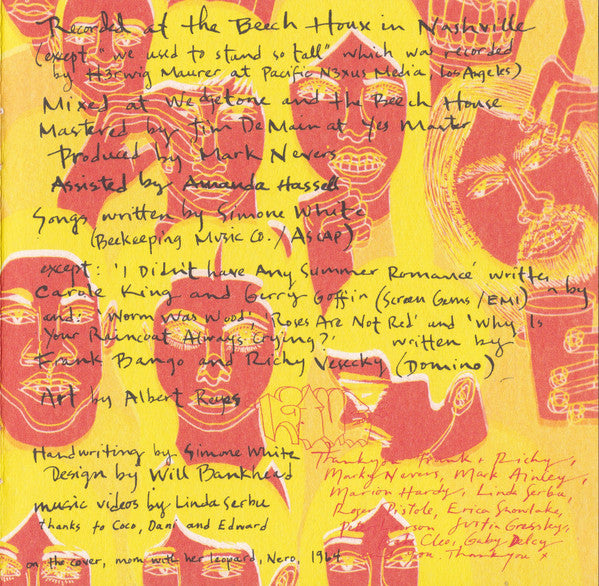 Recorded at the Beech House in Nashville
(except "we used to stand so tall" which was recorded
by H3rwig Maurer at Pacific N3xus Media, Los Angeles)
Mixed at Wedgetone and the Beech House
Mastered by Jim DeMain at Yes Master
Produced by Mark Nevers
Assisted by Amanda Hassell
Songs written by Simone White
(Beekeeping Music Co. / Ascap)
except: 'I Didn't have Any Summer Romance' written by
Carole King and Gerry Goffin (Screen Gems / EMI)
and: 'Worm Was Wood', 'Roses Are Not Red' and 'Why Is
Your Raincoat Always Crying?' written by
Frank Bango and Richy Vesecky (Domino)
Art by Albert Reyes
Handwriting by Simone White
Design by Will Bankhead
music videos by Linda Serbu
thanks to Coco, Dani and Edward
on the cover, mom with her leopard, Nero, 1964
Thankyou Frank + Richy,
Mark Nevers, Mark Ainley,
Marion Hardy, Linda Serbu,
Roger Pistole, Erica Snowlake,
Justin Grassky,
Cleo, Gaby Delcy
you, Thankyou x